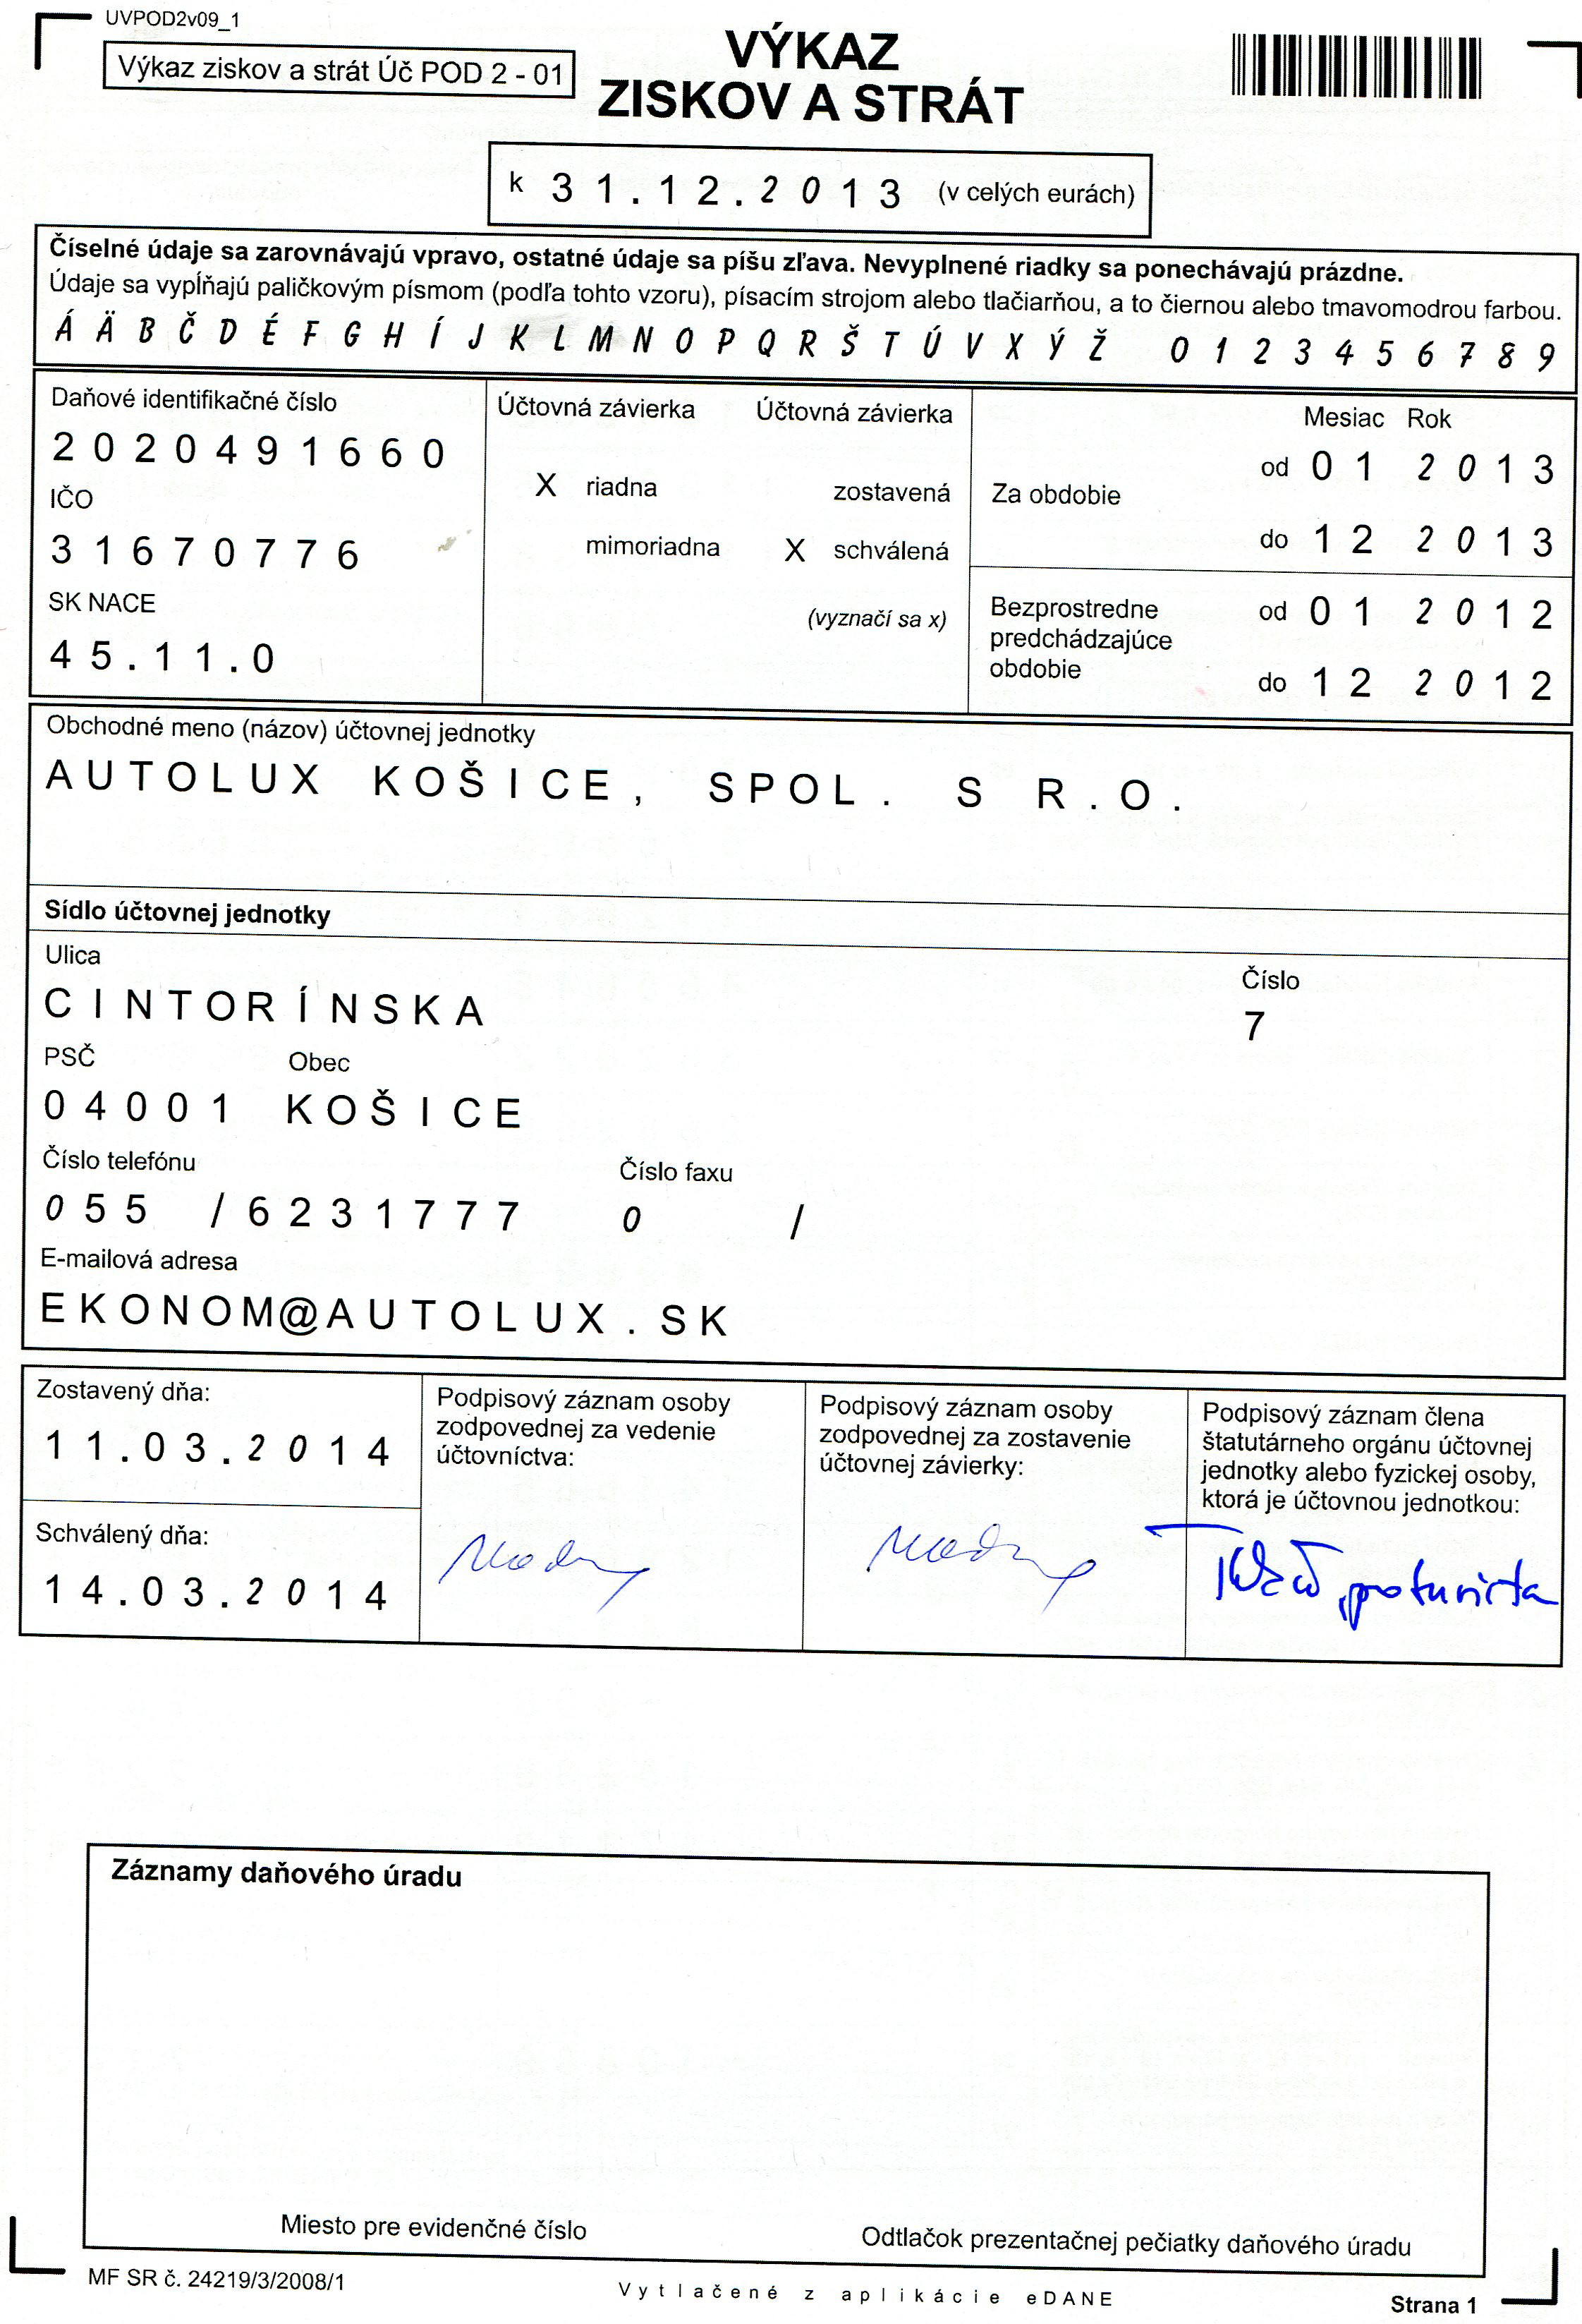 UVPOD2v09_1
Výkaz ziskov a strát Úč POD 2 - 01
VÝKAZ
ZISKOV A STRÁT
k 31.12.2013 (v celých eurách)
Číselné údaje sa zarovnávajú vpravo, ostatné údaje sa píšu zľava. Nevyplnené riadky sa ponechávajú prázdne.
Údaje sa vypĺňajú paličkovým písmom (podľa tohto vzoru), písacím strojom alebo tlačiarňou, a to čiernou alebo tmavomodrou farbou.
Á Ä B Č D É F G H Í J K L M N O P Q R Š T Ú V X Ý Ž 0 1 2 3 4 5 6 7 8 9
Daňové identifikačné číslo
2020491660
IČO
31670776
SK NACE
45.11.0
Účtovná závierka
X riadna
mimoriadna
Účtovná závierka
zostavená
X schválená
(vyznačí sa x)
Mesiac Rok
Za obdobie
od 01 2013
do 12 2013
Bezprostredne
predchádzajúce
obdobie
od 01 2012
do 12 2012
Obchodné meno (názov) účtovnej jednotky
AUTOLUX KOŠICE, SPOL. S R.O.
Sídlo účtovnej jednotky
Ulica
CINTORÍNSKA
Číslo
7
PSČ Obec
04001 KOŠICE
Číslo telefónu Číslo faxu
055 /6231777 0 /
E-mailová adresa
EKONOM@AUTOLUX.SK
Zostavený dňa:
11.03.2014
Schválený dňa:
14.03.2014
Podpisový záznam osoby
zodpovednej za vedenie
účtovníctva:
Podpisový záznam osoby
zodpovednej za zostavenie
účtovnej závierky:
Podpisový záznam člena
štatutárneho orgánu účtovnej
jednotky alebo fyzickej osoby,
ktorá je účtovnou jednotkou:
Záznamy daňového úradu
Miesto pre evidenčné číslo
Odtlačok prezentačnej pečiatky daňového úradu
MF SR č. 24219/3/2008/1
Vytlačené z aplikácie eDANE
Strana 1